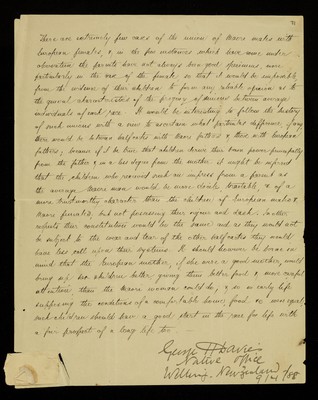 There are extremely few cases of the union of Maori males with
European females, &, in the few instances which have come under
observation the parents have not always been good specimens, more
particularly in the case of the female so that it would be impossible,
from the evidence of their children to form any reliable opinion as to
the general characteristics of the progeny of unions between average
individuals of each race. It would be interesting to follow the history
of such unions with a view to ascertain what particular difference, if any,
there would be between halfcastes with Maori fathers & those with European
fathers; because if it be true that children derive their brain power principally
from the father & in a less degree from the mother it might be inferred
that the children who received such an impress from a parent as
the average Maori man would be more docile, tractable, & of a
more trustworthy character than the children of European males &
Maori females, but not possessing their vigour and dash. In other
respects their constitution would be the same and as they would not
be subject to the wear and tear of the other halfcastes they would
have less call upon their systems. It should however be borne in
mind that the European mother, if she were a good mother, would
bring up her children better giving them better food & more careful
attention than the Maori woman could do, & so in early life
supposing the conditions of a comfortable home, food &c were equal,
such children should have a good start in the race for life with
a fair prospect of a long life too.
George H Davies
Native Office
Wellington New Zealand
/88